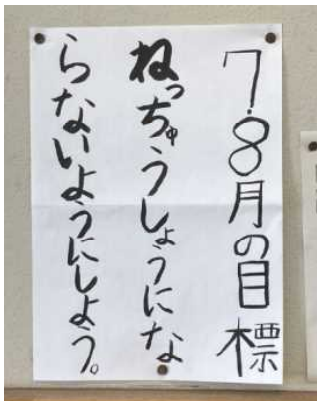 7・8月の目標
ねっちゅうしょうにな
らないようにしよう。